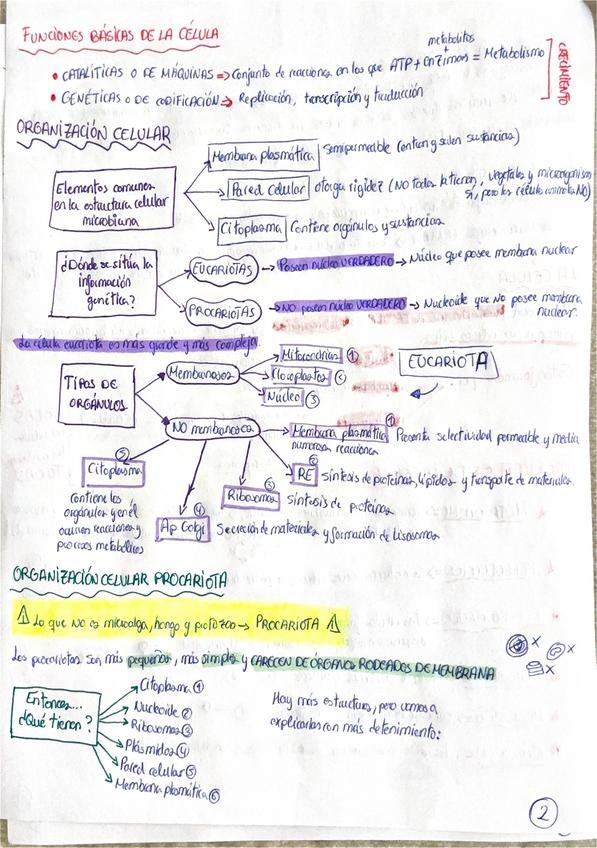 FUNCIONES BÁSICAS DE LA CÉLULA
metabolitos
+
• CATALÍTICAS O DE MÁQUINAS => Conjunto de reacciones en los que ATP + enzimas = Metabolismo
• GENÉTICAS O DE CODIFICACIÓN => Replicación, transcripción y traducción
CRECIMIENTO
ORGANIZACIÓN CELULAR
Elementos comunes
en la estructura celular
microbiana
Membrana plasmática Semipermeable (entran y salen sustancias)
Pared Celular otorga rigidez (NO todas la tienen, vegetales y microorganismos
sí, pero las células animales NO)
Citoplasma Contiene orgánulos y sustancias
¿Dónde se sitúa la
información
genética?
EUCARIOTAS → Poseen núcleo VERDADERO → Núcleo que posee membrana nuclear
PROCARIOTAS → NO poseen núcleo VERDADERO → Nucleoide que no posee membrana
nuclear.
La célula eucariota es más grande y más compleja
TIPOS DE
ORGÁNULOS
Membranosos
Mitocondrias ①
Cloroplastos ②
Núcleo ③
EUCARIOTA
NO membranosos
① Membrana plasmática Presenta selectividad permeable y media
numerosas reacciones
② RE Síntesis de proteínas, lípidos y transporte de materiales.
③ Ribosomas Síntesis de proteínas
④ Ap Golgi Secreción de materiales y formación de lisosomas
⑤ Citoplasma
contiene los
orgánulos y en él
ocurren reacciones y
procesos metabólicos
ORGANIZACIÓN CELULAR PROCARIOTA
⚠ Lo que NO es microalga, hongo y protozoo → PROCARIOTA ⚠
Los procariotas son más pequeños, más simples y CARECEN DE ÓRGANOS RODEADOS DE MEMBRANA
Entonces...
¿Qué tienen?
Citoplasma ①
Nucleoide ②
Ribosomas ③
Plásmidos ④
Pared celular ⑤
Membrana plasmática ⑥
Hay más estructuras, pero vamos a
explicarlas con más detenimiento:
2